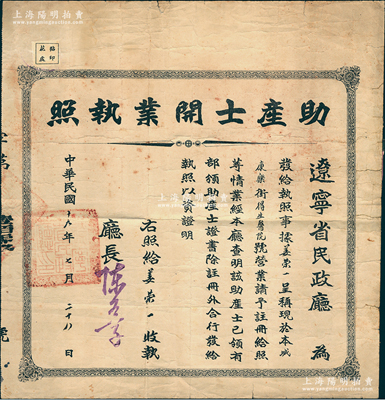 上海陽明拍賣
貼印
花處
助產士開業執照
遼寧省民政廳 為
發給執照事據姜榮一呈稱現於本城
康樂街得生醫院號營業請予註冊給照
等情業經本廳查明該助產士已領有
部頒助產士證書除註冊外合行發給
執照以資證明
右照給姜榮一收執
廳長
中華民國十八年七月二十八日
號
上海陽明拍賣